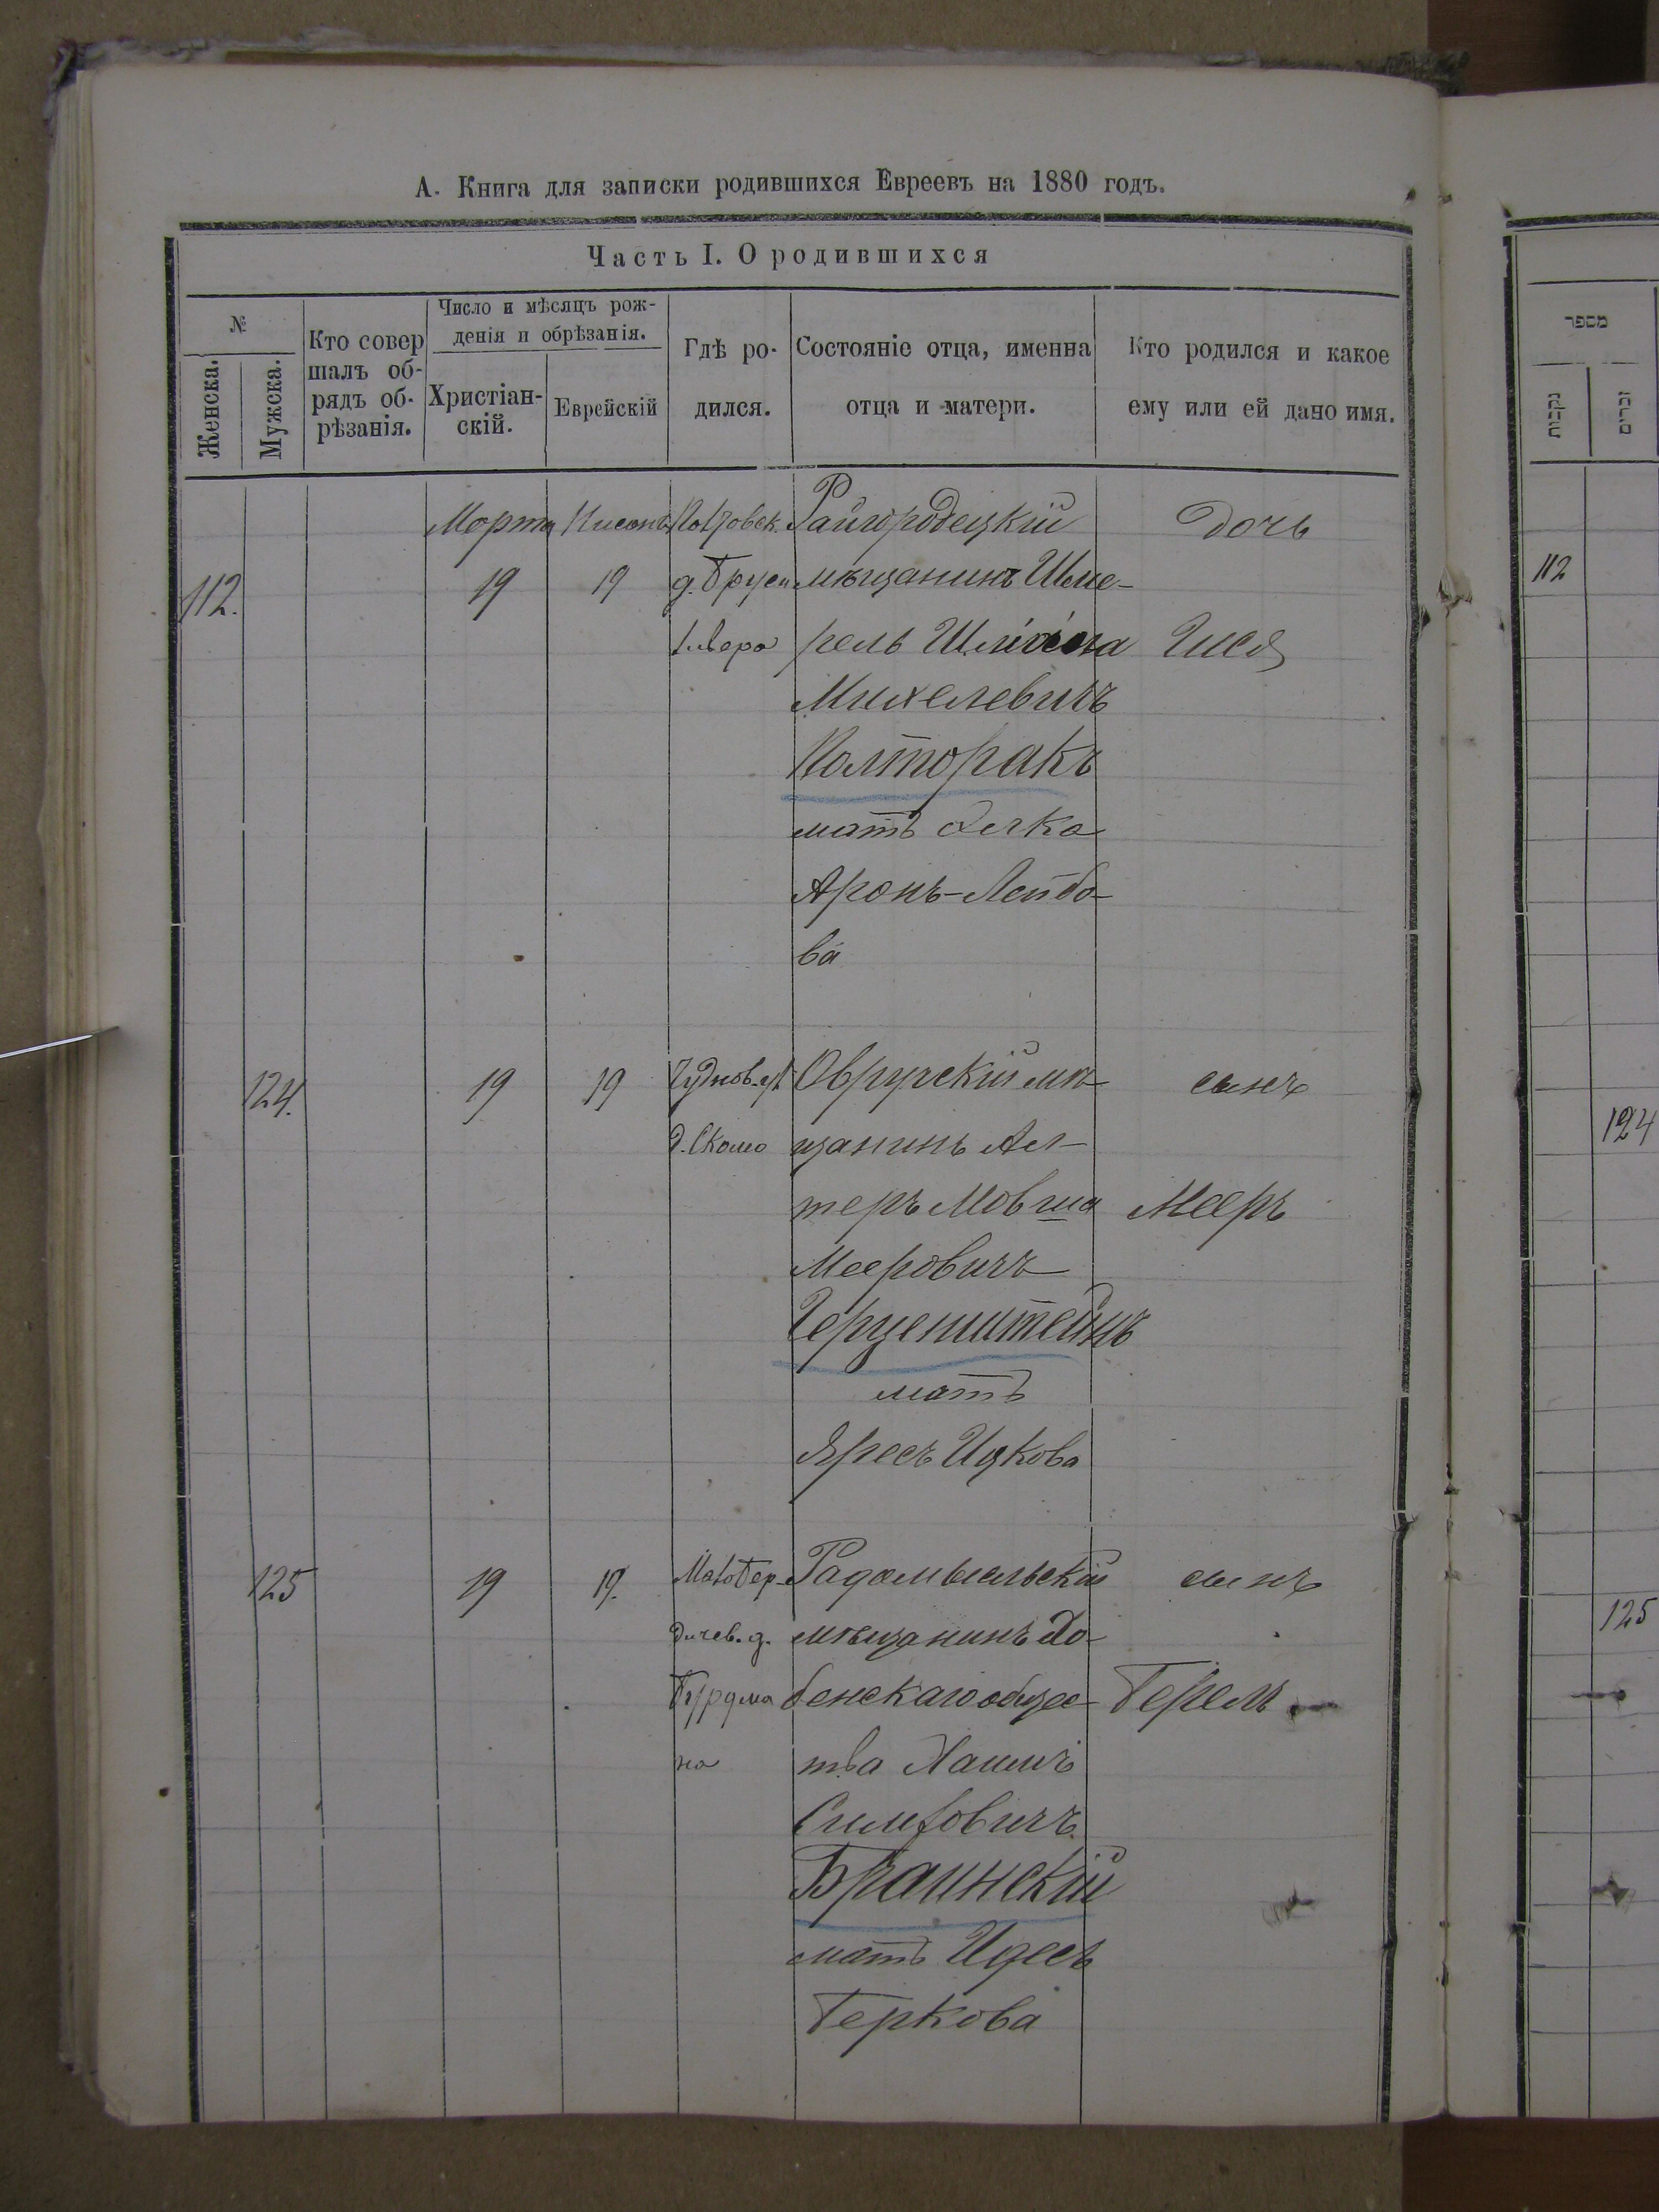 А. Книга для записки родившихся Евреевъ на 1880 годъ.
Часть I. О родившихся
№
Женска.
Мужска.
Кто совер
шалъ об-
рядъ об-
рѣзанія.
Число и мѣсяцъ рож-
денія и обрѣзанія.
Христіан-
скій.
Еврейскій
Гдѣ ро-
дился.
Состояніе отца, именна
отца и матери.
Кто родился и какое
ему или ей дано имя.
112.
Марта
19
Нисона
19
д. Бруси
Райгородецкій
мѣщанинъ Шме-
рель
Михелевичъ
Полторакъ
мать
Аронъ-Лейбо-
ва
дочь
124.
19
19
Чуднов. ул.
д.
Овручскій мѣ-
щанинъ Ал-
теръ Мовша
Мееровичъ
Герценштейнъ
мать
Ицкова
сынъ
Мееръ
125
19
19.
Мало Бер-
дичев. д.
Бурдма
на
Радомысльскій
мѣщанинъ Ха-
бенскаго общес-
тва Хаимъ
Симховичъ
Браинскій
мать Идесъ
Беркова
сынъ
Берель
מספר
נקבות
זכרים
112
124
125